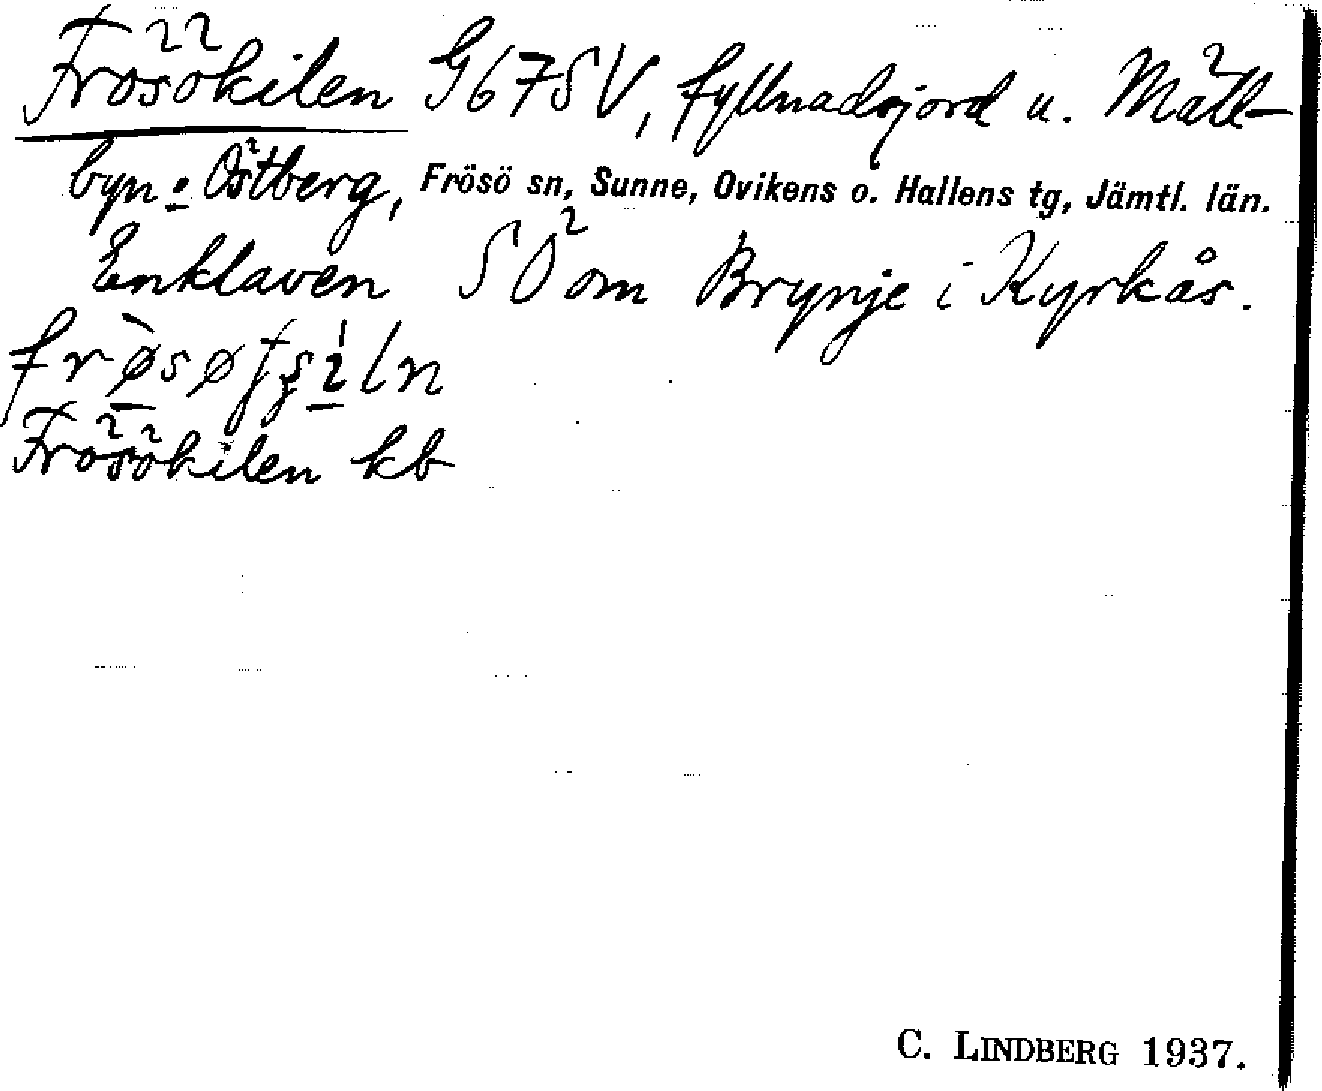 Frösökilen G67SV, fyllnadsjord u. Mäll-
byn o. Östberg, Frösö sn, Sunne, Ovikens o. Hallens tg, Jämtl. län.
Enklaven SÖ om Brynje i Kyrkås.
Frösökilen kb
C. LINDBERG 1937.